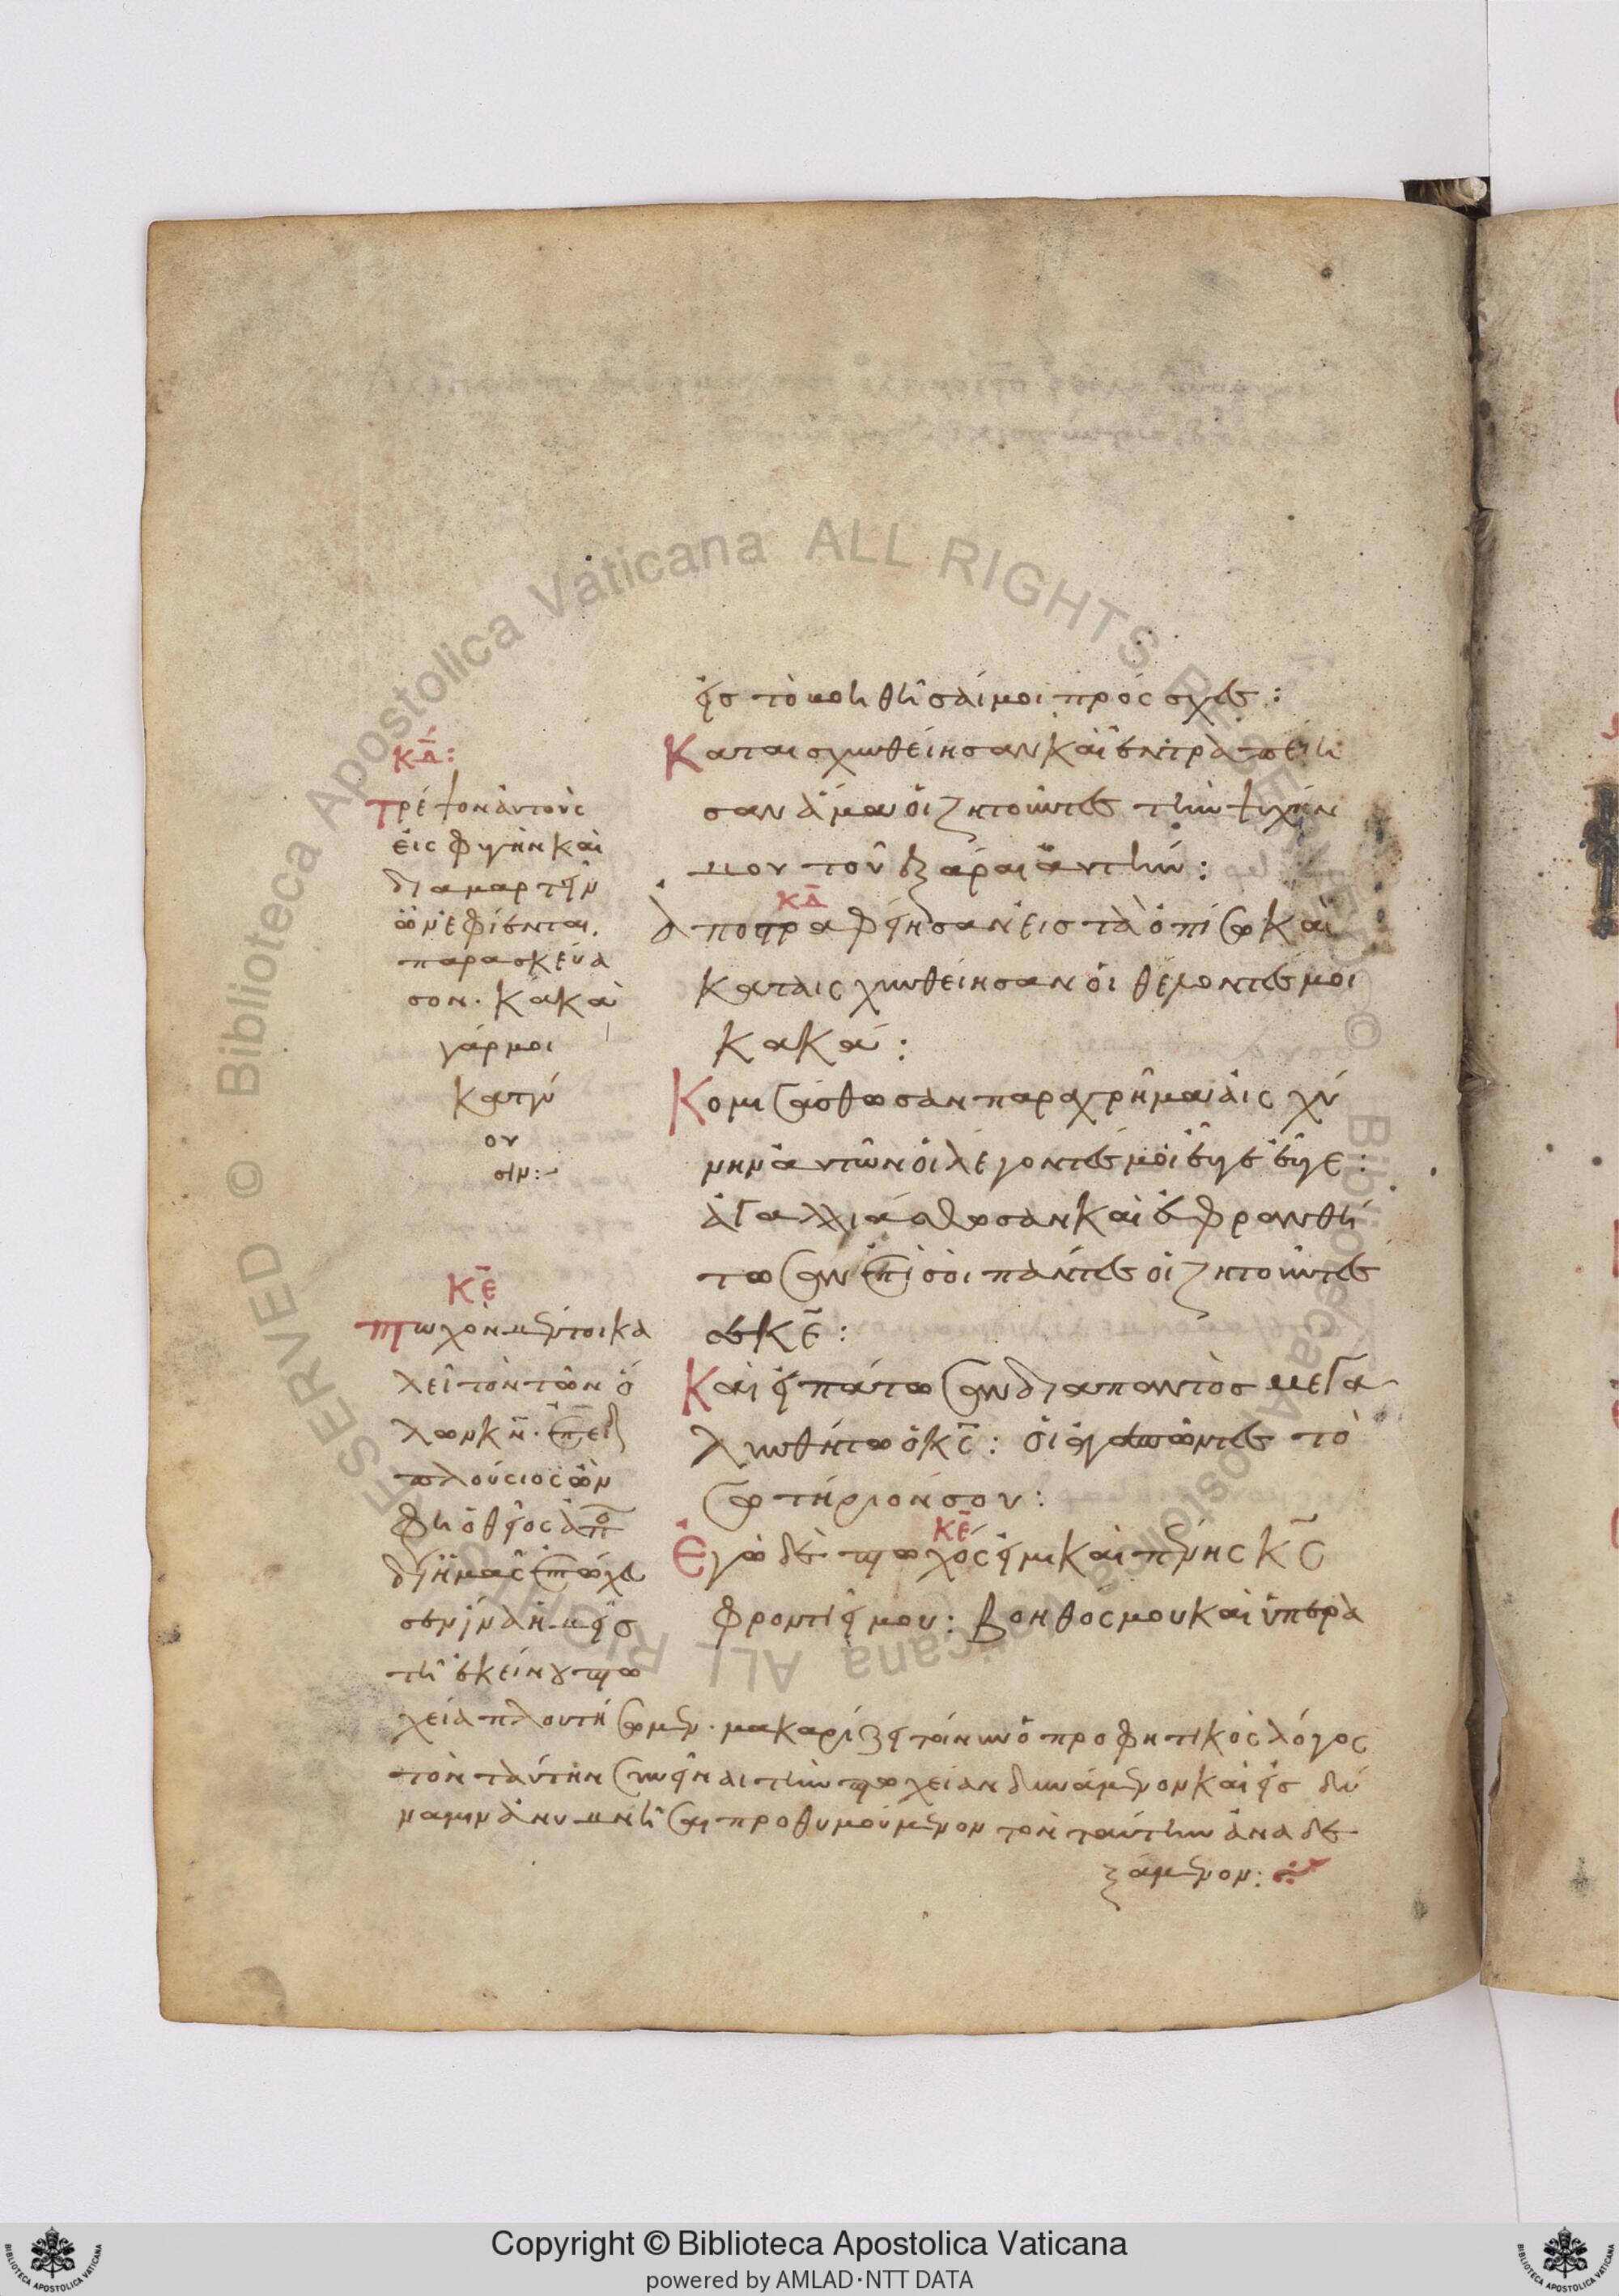 εἰς τὸ βοηθῆσαί μοι πρόσχες:
Καταισχυνθείησαν καὶ ἐντραπείη
σαν ἅμα οἱ ζητοῦντες τὴν ψυχήν
μου τοῦ ἐξᾶραι αὐτήν:
κδ
Ἀποστραφείησαν εἰς τὰ ὀπίσω καὶ
καταισχυνθείησαν οἱ θέλοντές μοι
κακά:
Κομισάσθωσαν παραχρῆμα αἰσχύ
νην αὐτῶν οἱ λέγοντές μοι εὖγε εὖγε:
ἀγαλλιάσθωσαν καὶ εὐφρανθή
τωσαν ἐπὶ σοὶ πάντες οἱ ζητοῦντές
σε κε:
Καὶ εἰπάτωσαν διαπαντὸς μεγα
λυνθήτω ὁ κς: οἱ ἀγαπῶντες τὸ
σωτήριόν σου:
κε
Ἐγὼ δὲ πτωχός εἰμι καὶ πένης κς
φροντιεῖ μου: βοηθός μου καὶ ὑπερα
κδ:
Τρέψον αὐτοὺς
εἰς φυγὴν καὶ
διαμαρτεῖν
ὧν ἐφίενται,
παρασκεύα
σον. κακὰ
γάρ μοι
καττύ
ου
σιν:
κε
πτωχὸν μέντοι κα
λεῖ τὸν τῶν ὅ
λων κν. ἐπειδὴ
πλούσιος ὢν
φη ὁ θεῖος ἀπο
δι' ἡμᾶς ἐπτώχευ
σεν ἵνα ἡμεῖς
τῇ ἐκείνου πτω
χεία πλουτήσωμεν. μακαρίζει τοίνυν ὁ προφητικὸς λόγος
τὸν ταύτην συνεῖναι τὴν πτωχείαν δυνάμενον καὶ εἰς δύ
ναμιν ἀνυμνῆσαι προθυμούμενον τὸν ταύτην ἀναδε
ξάμενον:
Copyright © Biblioteca Apostolica Vaticana
powered by AMLAD·NTT DATA